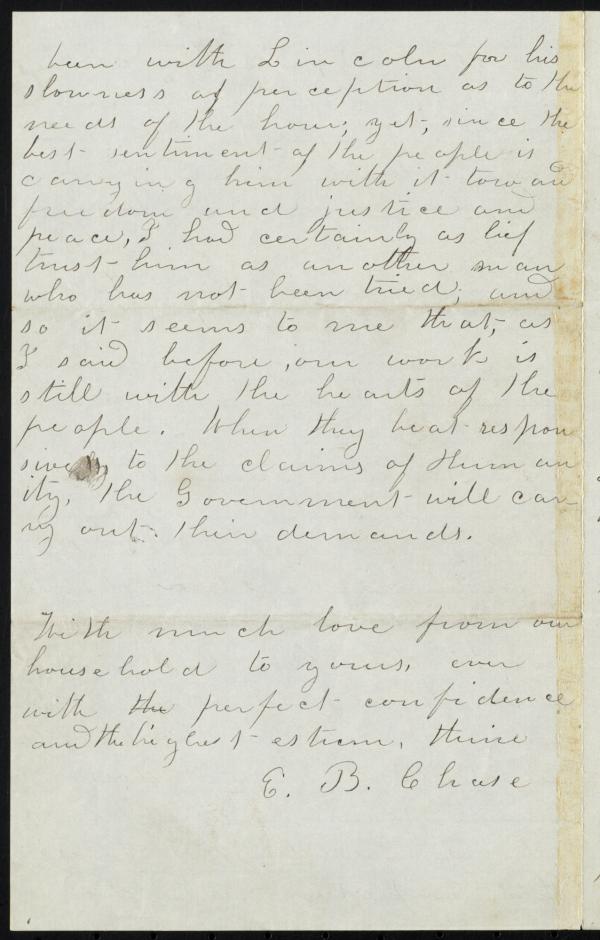 been with Lincoln for his
slowness of perception as to the
needs of the hour; yet, since the
best sentiment of the people is
carrying him with it toward
freedom and justice and
peace, I had certainly as lief
trust him as another man
who has not been tried; and
so it seems to me that, as
I said before, our work is
still with the hearts of the
people. When they beat respon
sively to the claims of Human
ity, the Government will car
ry out their demands.
With much love from our
household to yours, ever
with the perfect confidence
and the highest esteem, thine
E. B. Chase